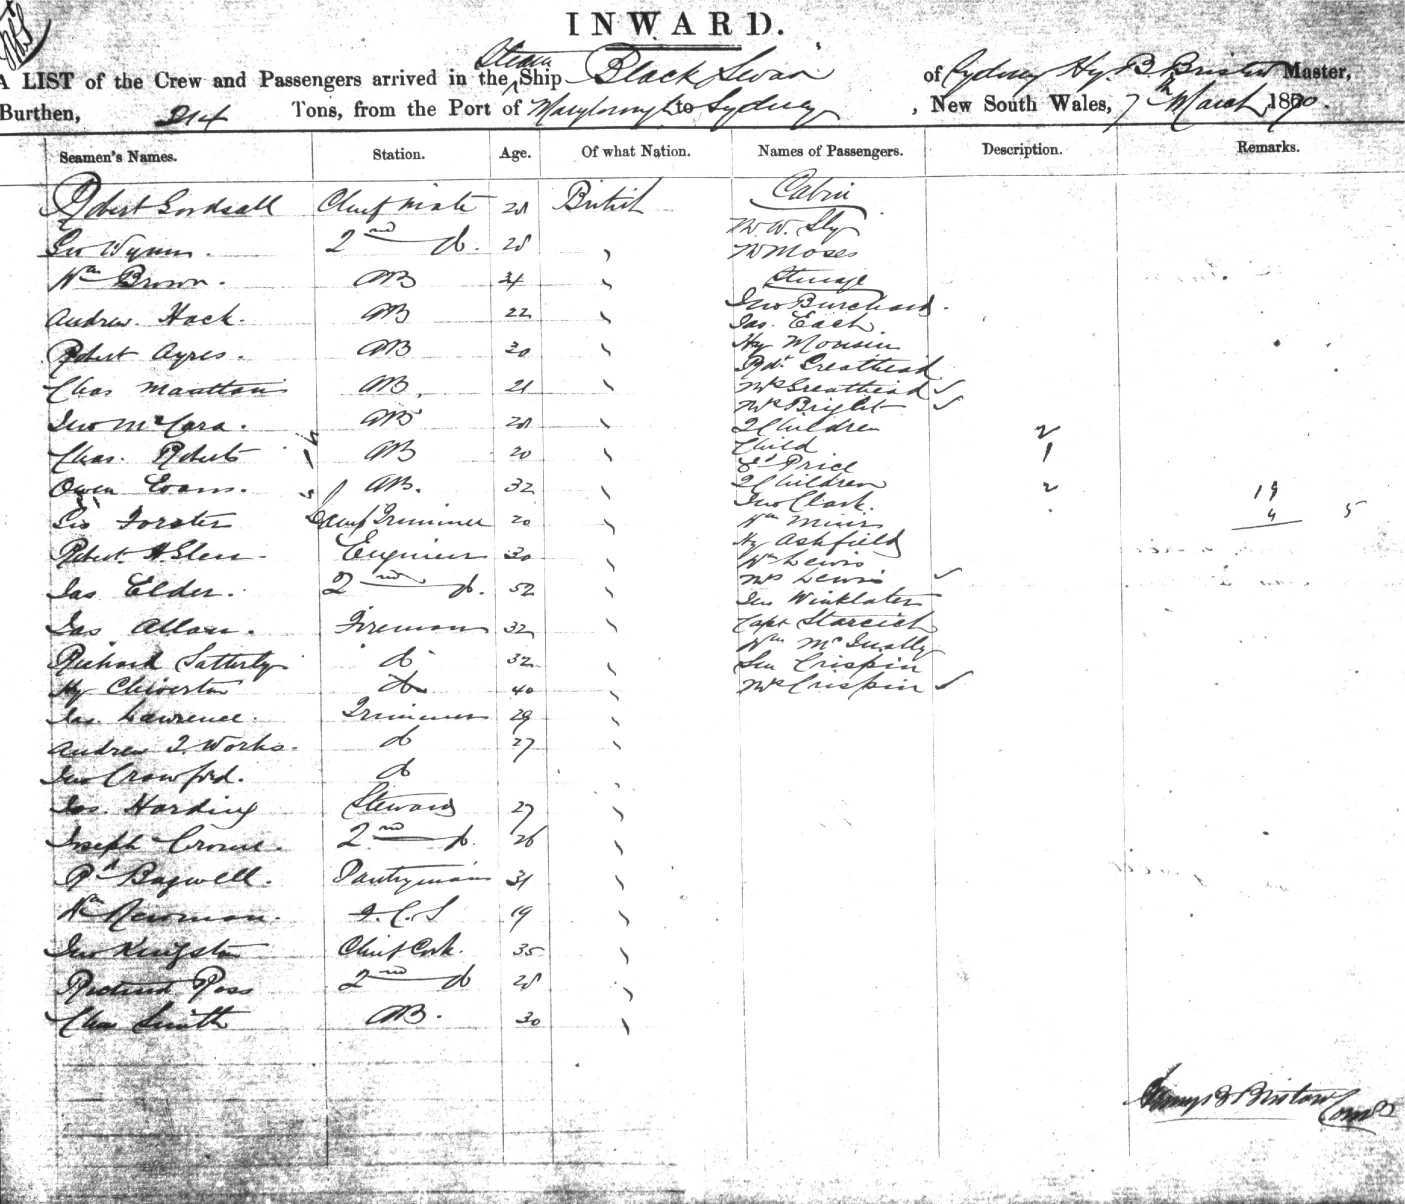 INWARD.
A LIST of the Crew and Passengers arrived in the Steam Ship Black Swan of Sydney Hy. B. Bristow Master,
Burthen, 214 Tons, from the Port of Maryborough to Sydney, New South Wales, 7th March 1870.
Seamen's Names. Station. Age. Of what Nation. Names of Passengers. Description. Remarks.
Robert Chief Mate 28 British Cabin
Geo Wynn. 2nd do. 28 " W. Sly
W Moses
Wm Brown. AB 34 " Steerage
Andrew. Hack. AB 22 " Jno Burchard.
Jas. Each.
Robert Ayres. AB 30 " Hy
Rdt. Greathead
Chas AB. 21 " Mrs Greathead ✓
Mrs Bright ✓
Jno McCara. AB 28 " 2 Children 2
Chas. Roberts AB 20 " Child 1
Ed Price
Owen Evans. AB. 32 " 2 Children 2 19
Jno Clark.
Geo Forster Lamp Trimmer 20 " Wm 4 5
Robert. H. Glen. Engineer 30 " Hy Ashfield
Wm Lewis
Jas Elder. 2nd do. 52 " Mrs Lewis ✓
Jno
Jas Allan. Fireman 32 " Capt
Wm
Richard Satterly do 32 " Crispin
Hy Chiverton do 40 " Mrs Crispin ✓
Jas. Lawrence. Trimmer 29 "
Andrew T. Works. do 27 "
Jno Crawford. do "
Jas. Harding Steward 27 "
Joseph Crowe. 2nd do. 26 "
Rd Bagwell. Pantryman 31 "
Wm Newman. 19 "
Jno Kingston Chief Cook. 35 "
Richard Ross 2nd do 28 "
Chas Smith AB. 30 "
Henry B Bristow